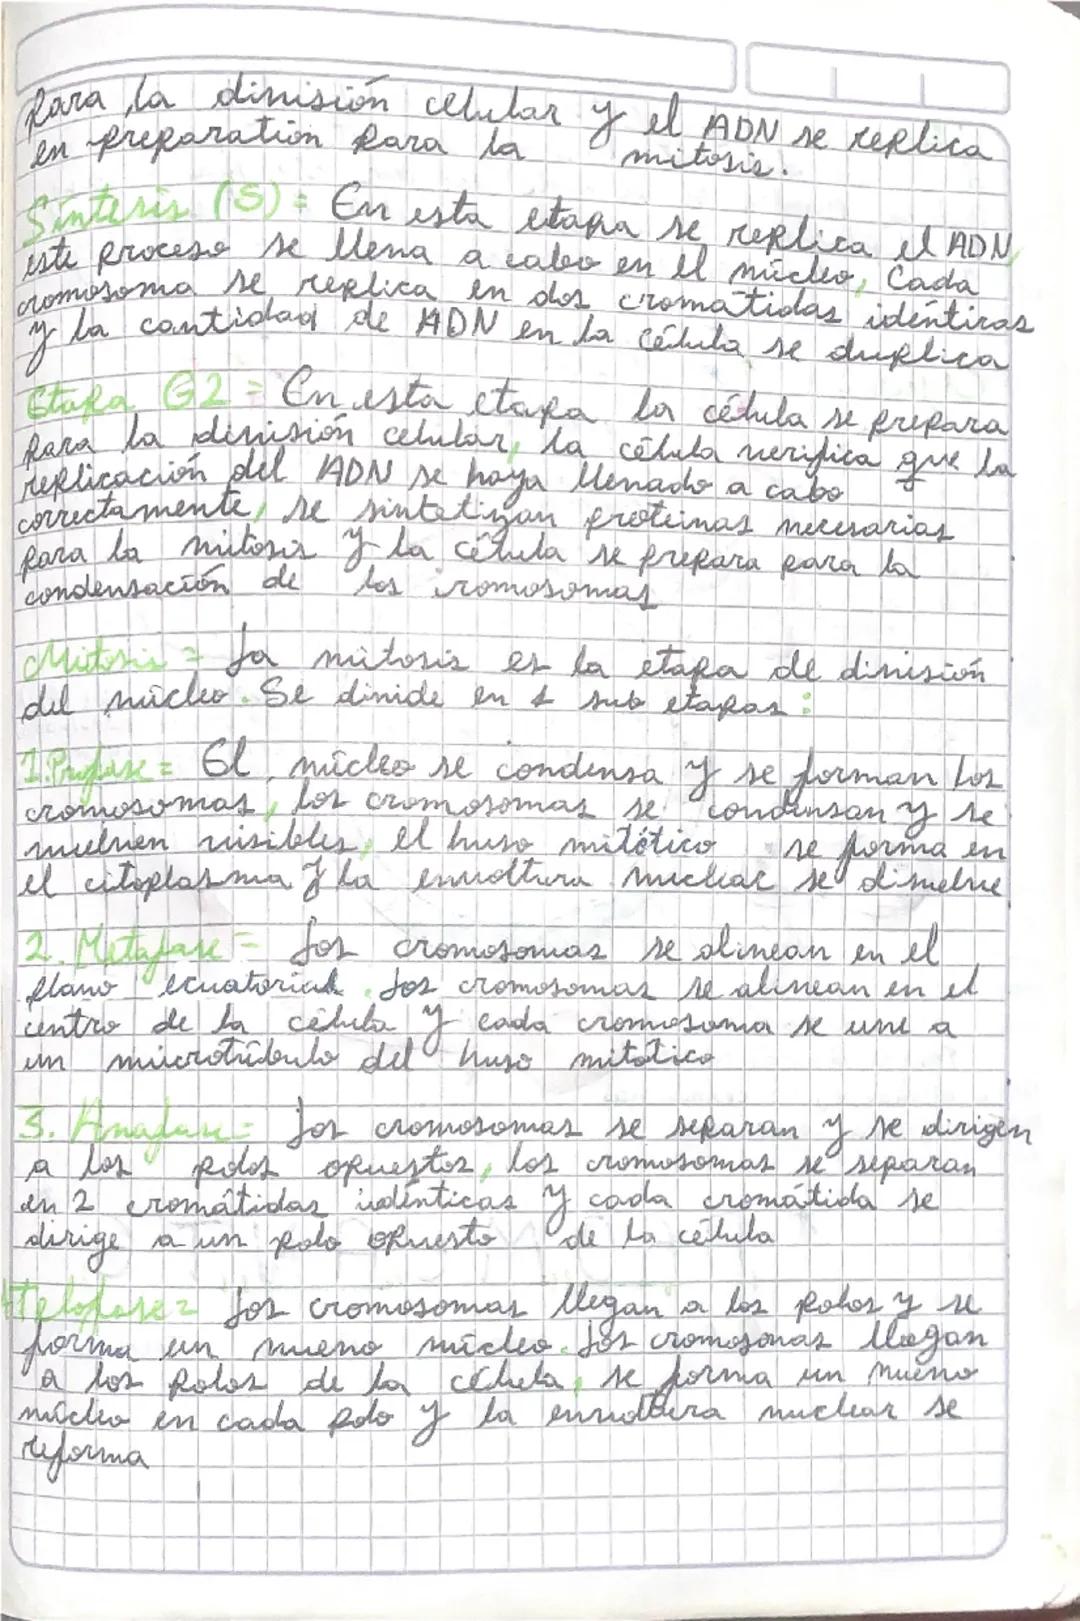 Para la división celular y el ADN se replica
en preparation para la mitosis.
Síntesis (S) = En esta etapa se replica el ADN,
este proceso se lleva a cabo en el núcleo, Cada
cromosoma se replica en dos cromátidas idénticas
y la cantidad de ADN en la célula se duplica
Etapa G2 = En esta etapa la célula se prepara
para la división celular, la célula verifica que la
replicación del ADN se haya llevado a cabo
correctamente, se sintetizan proteínas necesarias
para la mitosis y la célula se prepara para la
condensación de los cromosomas
Mitosis = La mitosis es la etapa de división
del núcleo. Se divide en 4 sub etapas:
1. Profase = El núcleo se condensa y se forman los
cromosomas, los cromosomas se condensan y se
vuelven visibles, el huso mitótico se forma en
el citoplasma y la envoltura nuclear se disuelve
2. Metafase = Los cromosomas se alinean en el
plano ecuatorial. Los cromosomas se alinean en el
centro de la célula y cada cromosoma se une a
un microtúbulo del huso mitótico
3. Anafase = Los cromosomas se separan y se dirigen
a los polos opuestos, los cromosomas se separan
en 2 cromátidas idénticas y cada cromátida se
dirige a un polo opuesto de la célula
Telofase = Los cromosomas llegan a los polos y se
forma un nuevo núcleo. Los cromosomas llegan
a los polos de la célula, se forma un nuevo
núcleo en cada polo y la envoltura nuclear se
reforma